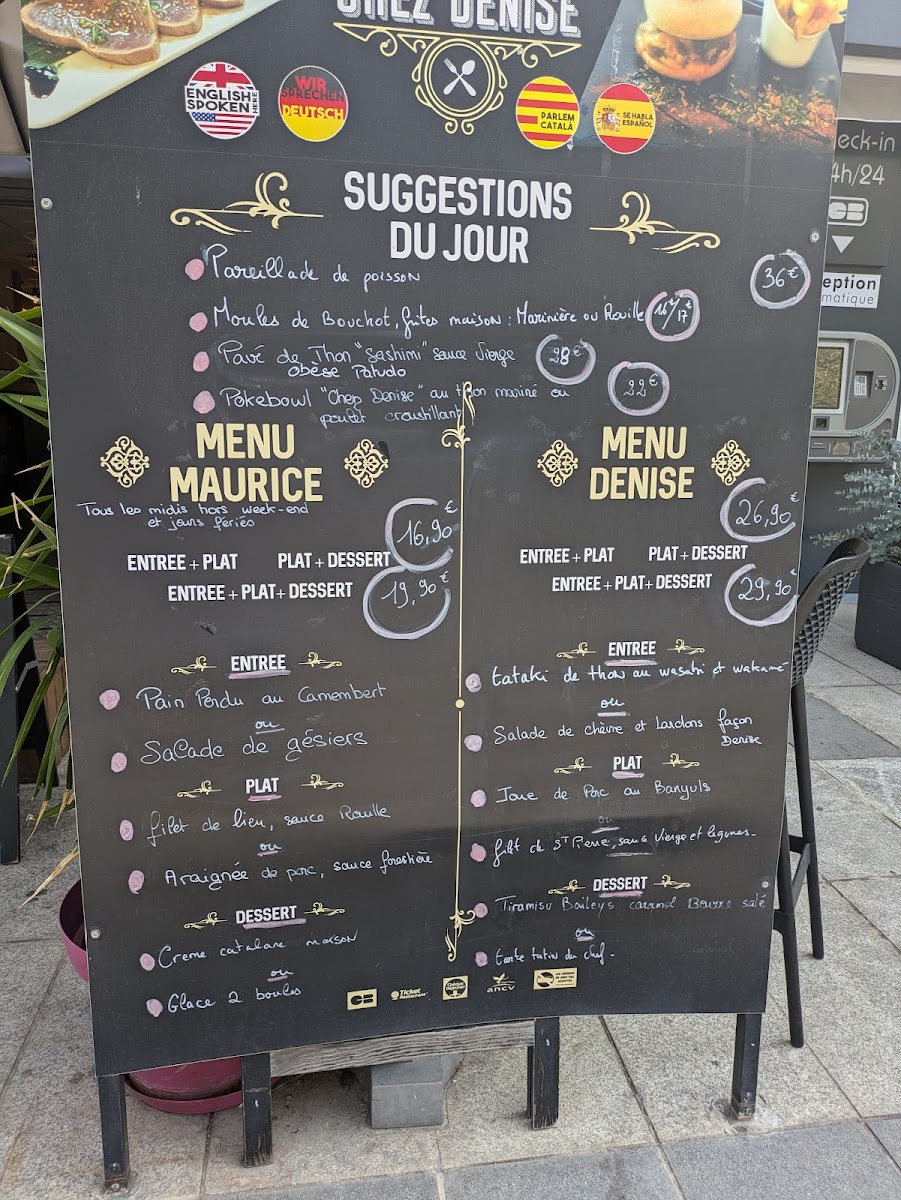 CHEZ DENISE
ENGLISH SPOKEN HERE
WIR SPRECHEN DEUTSCH
PARLEM CATALÀ
SE HABLA ESPAÑOL
eck-in
4h/24
CB
eption
matique
SUGGESTIONS
DU JOUR
Pareillade de poisson 36€
Moules de Bouchot, frites maison : Marinière ou Rouille 16€/17€
Pavé de Thon "Sashimi" sauce Vierge 28€
obèse Patudo
Pokébowl "Chez Denise" au thon mariné ou 22€
poulet croustillant
MENU
MAURICE
Tous les midis hors week-end
et jours fériés
16,90€
ENTREE + PLAT PLAT + DESSERT
ENTREE + PLAT + DESSERT
19,90€
ENTREE
Pain Perdu au Camembert
ou
Salade de gésiers
PLAT
filet de lieu, sauce Rouille
ou
Araignée de porc, sauce forestière
DESSERT
Creme catalane maison
ou
Glace 2 boules
MENU
DENISE
26,90€
ENTREE + PLAT PLAT + DESSERT
ENTREE + PLAT + DESSERT
29,90€
ENTREE
tataki de thon au wasabi et wakamé
ou
Salade de chèvre et lardons façon
Denise
PLAT
Joue de Porc au Banyuls
ou
filet de St Pierre, sauce Vierge et legumes
DESSERT
Tiramisu Baileys caramel Beurre salé
ou
tarte tatin du chef
CB
Ticket Restaurant
ancv